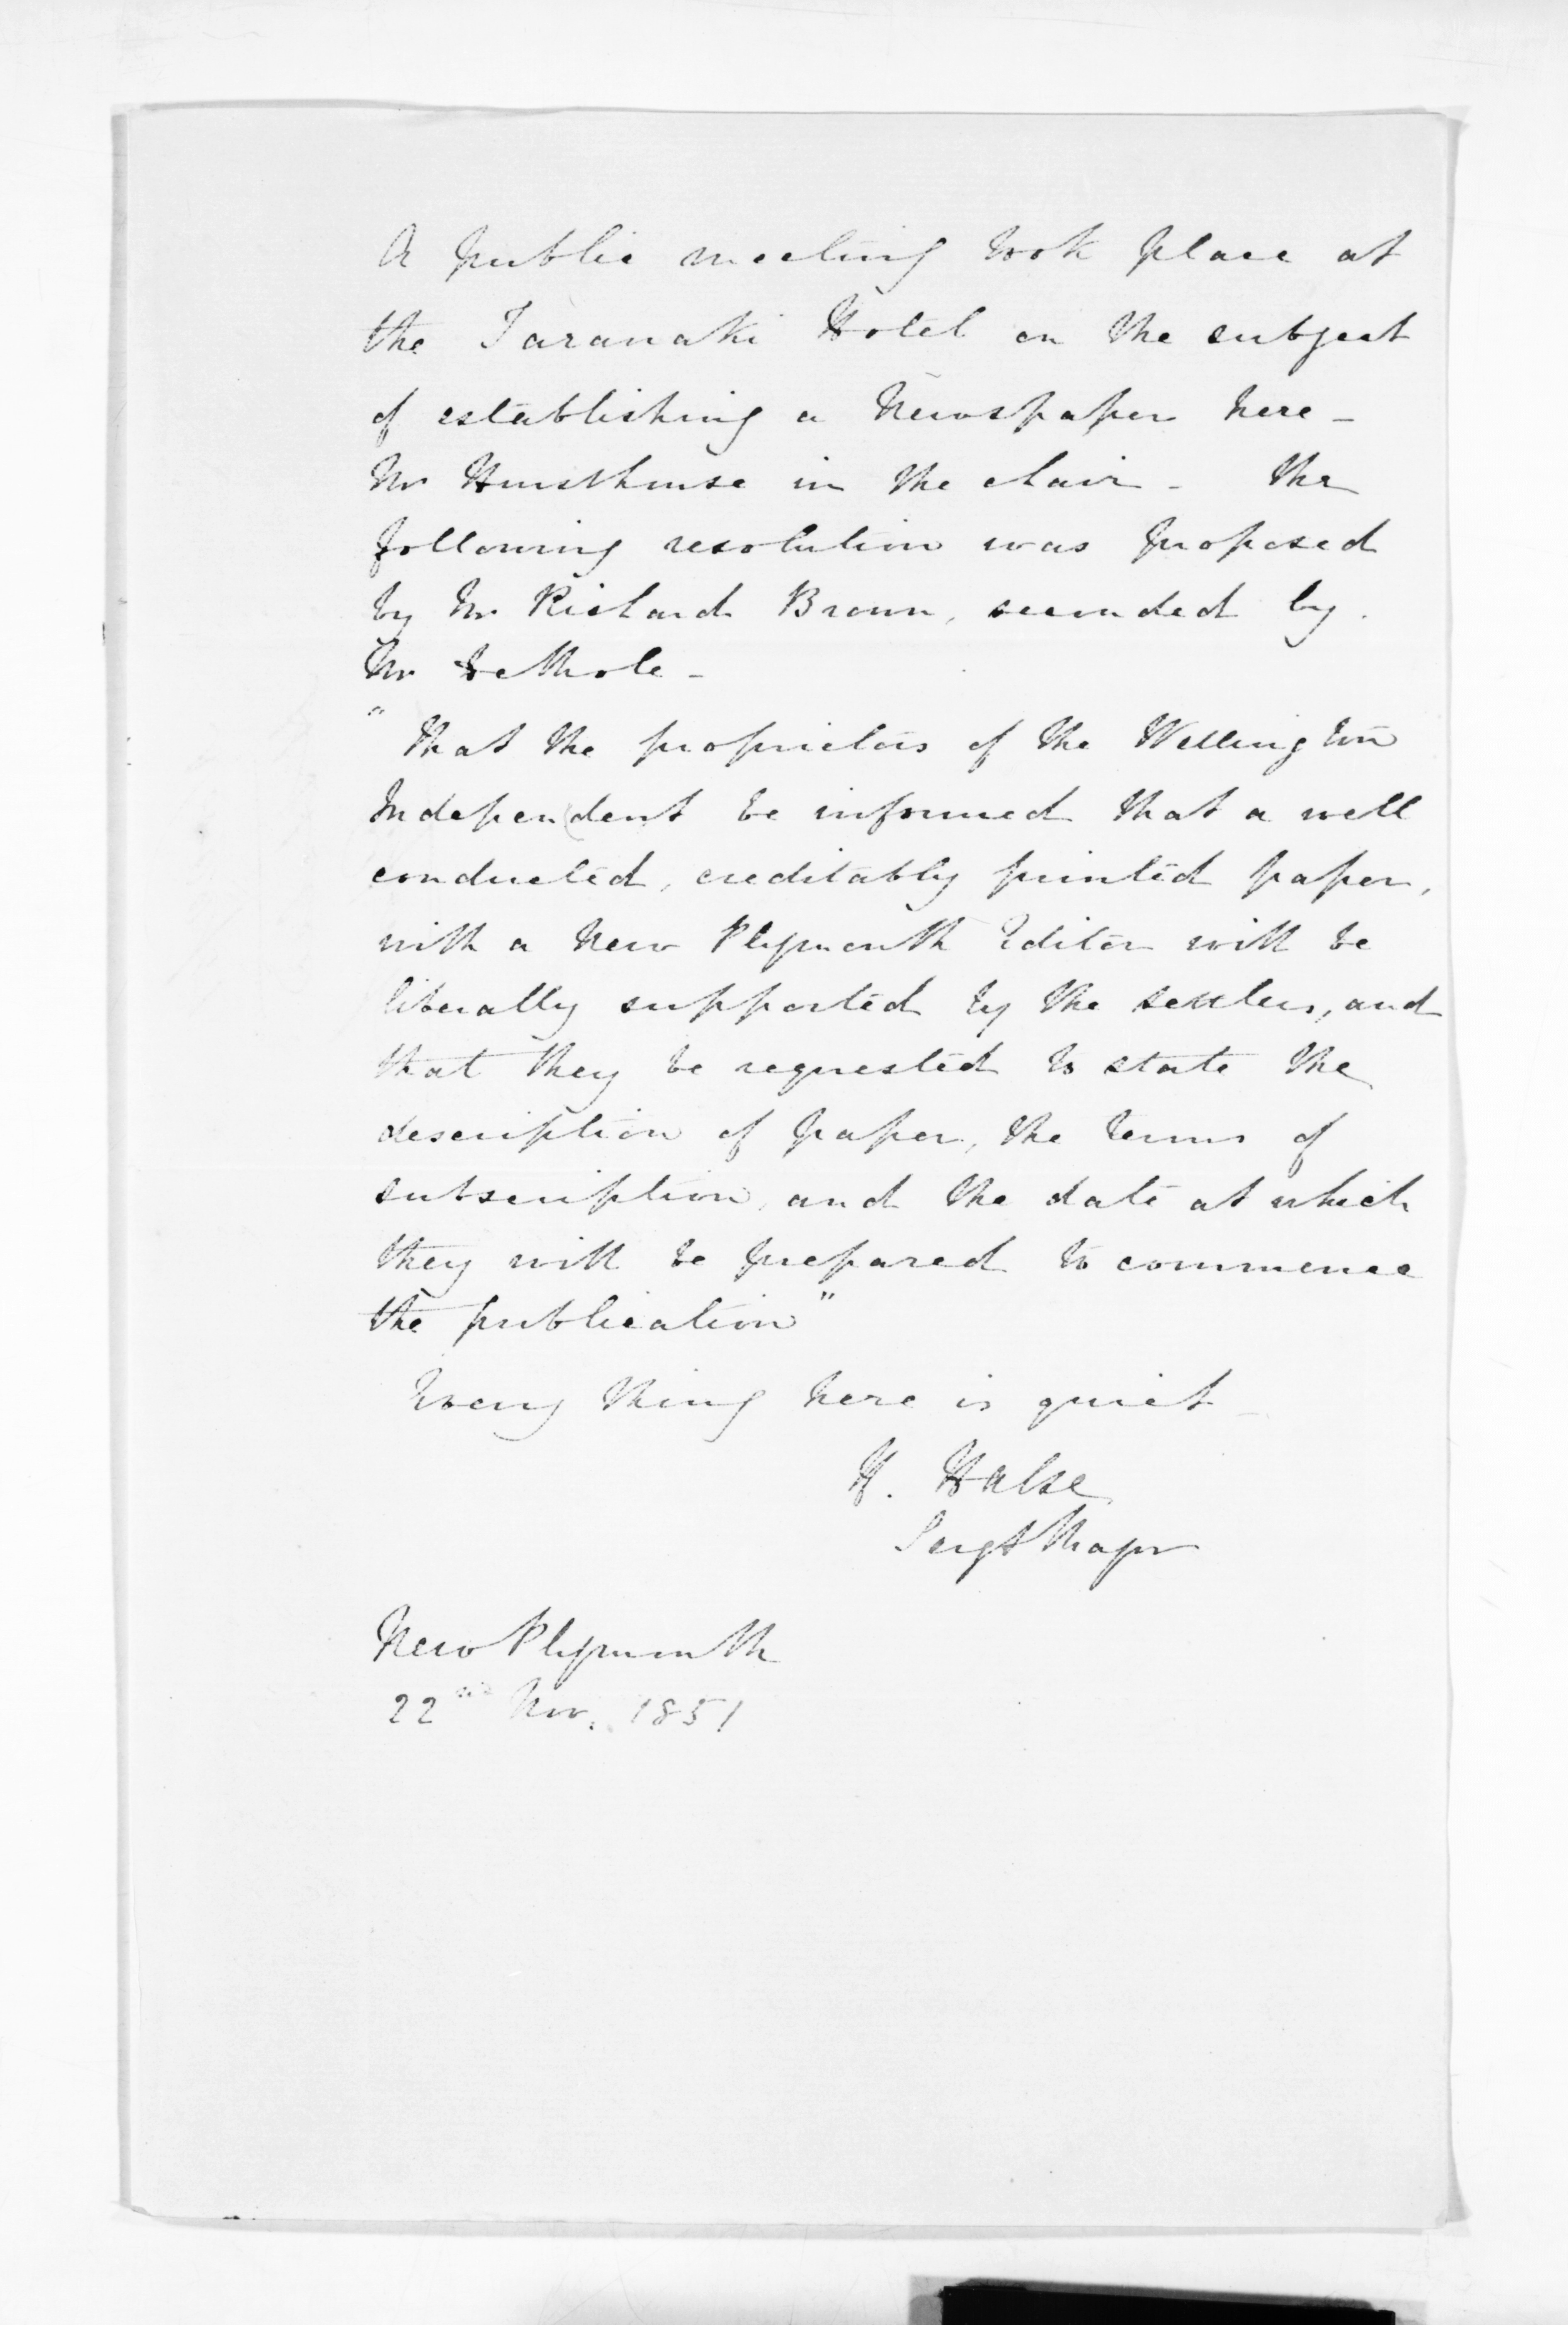 A public meeting took place at
the Taranaki Hotel on the subject
of establishing a Newspaper here -
Mr Hursthouse in the chair - The
following resolution was proposed
by Mr Richard Brown, seconded by
Mr
"That the proprietors of the Wellington
Independent be informed that a well
conducted, creditably printed paper,
with a New Plymouth Editor will be
liberally supported by the settlers, and
that they be requested to state the
description of paper, the terms of
subscription, and the date at which
they will be prepared to commence
the publication"
Every thing here is quiet -
H. Halse
Sergt Major
New Plymouth
22nd Nov. 1851